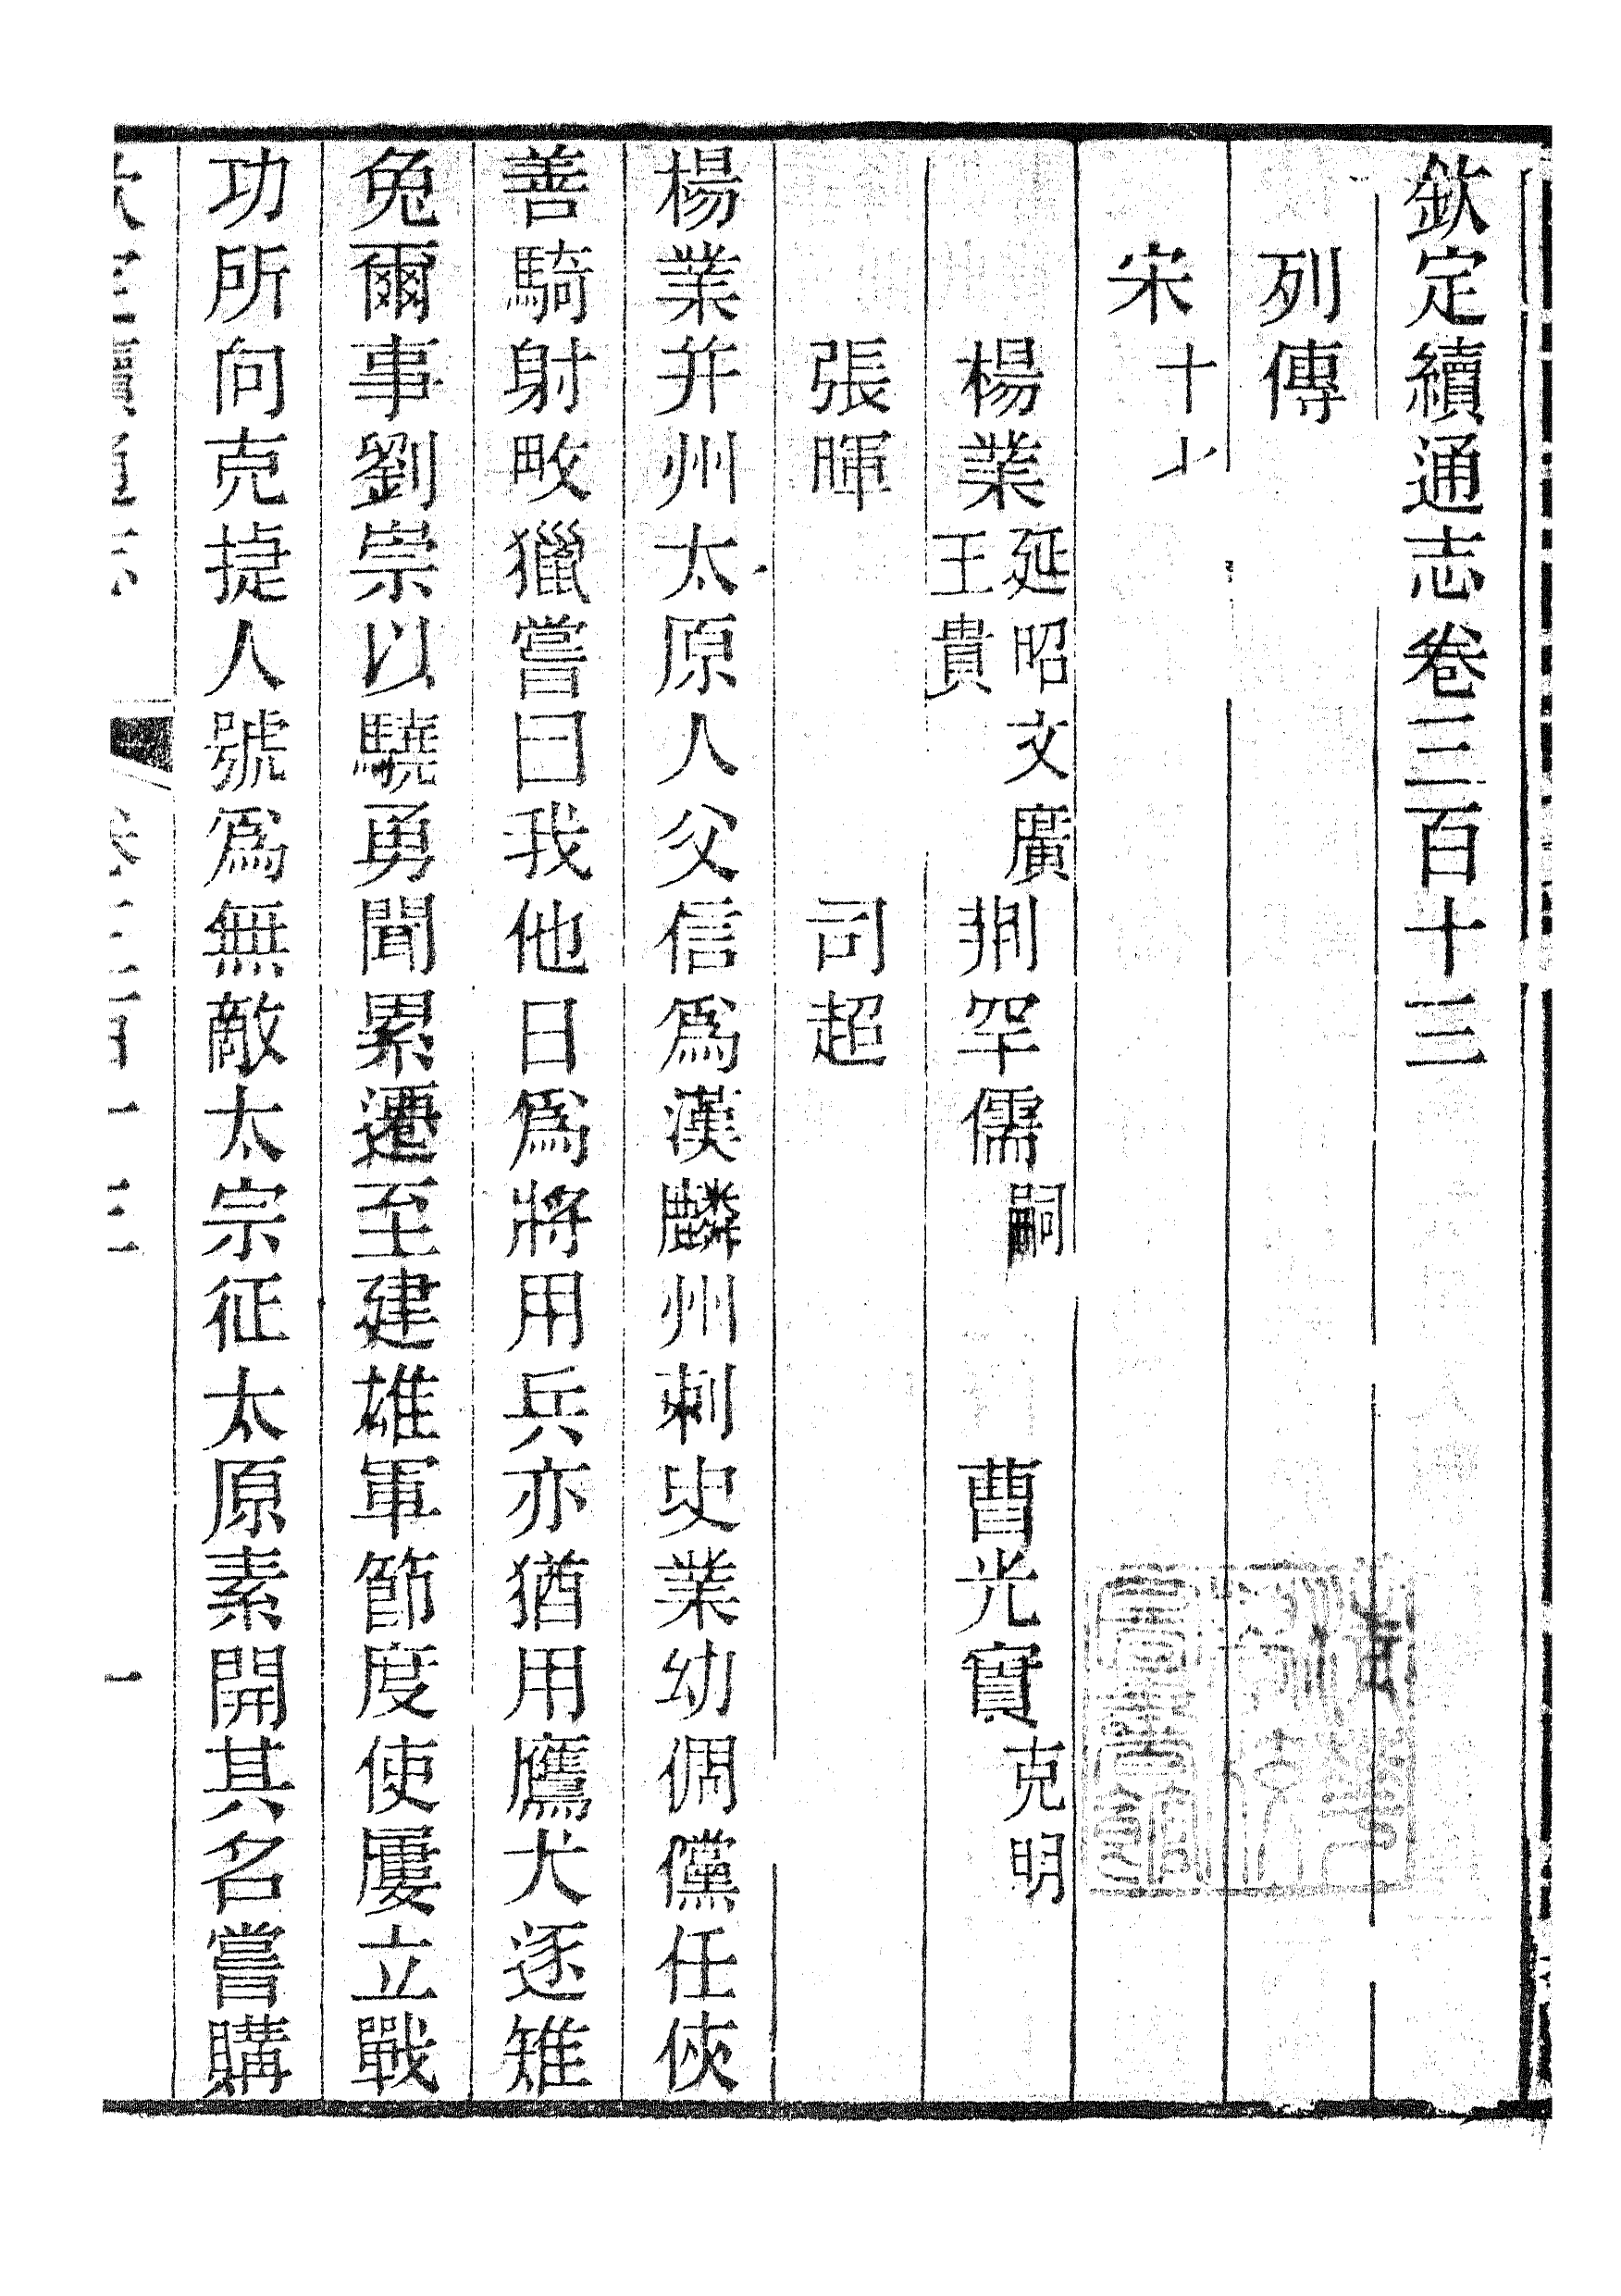 欽定續通志卷三百十三
列傳
宋十
楊業延昭文廣王貴 荆罕儒嗣 曹光實克明
張暉 司超
楊業并州太原人父信爲漢麟州刺史業幼倜儻任俠
善騎射畋獵嘗曰我他日爲將用兵亦猶用鷹犬逐雉
兔爾事劉崇以驍勇聞累遷至建雄軍節度使屢立戰
功所向克捷人號爲無敵太宗征太原素聞其名嘗購